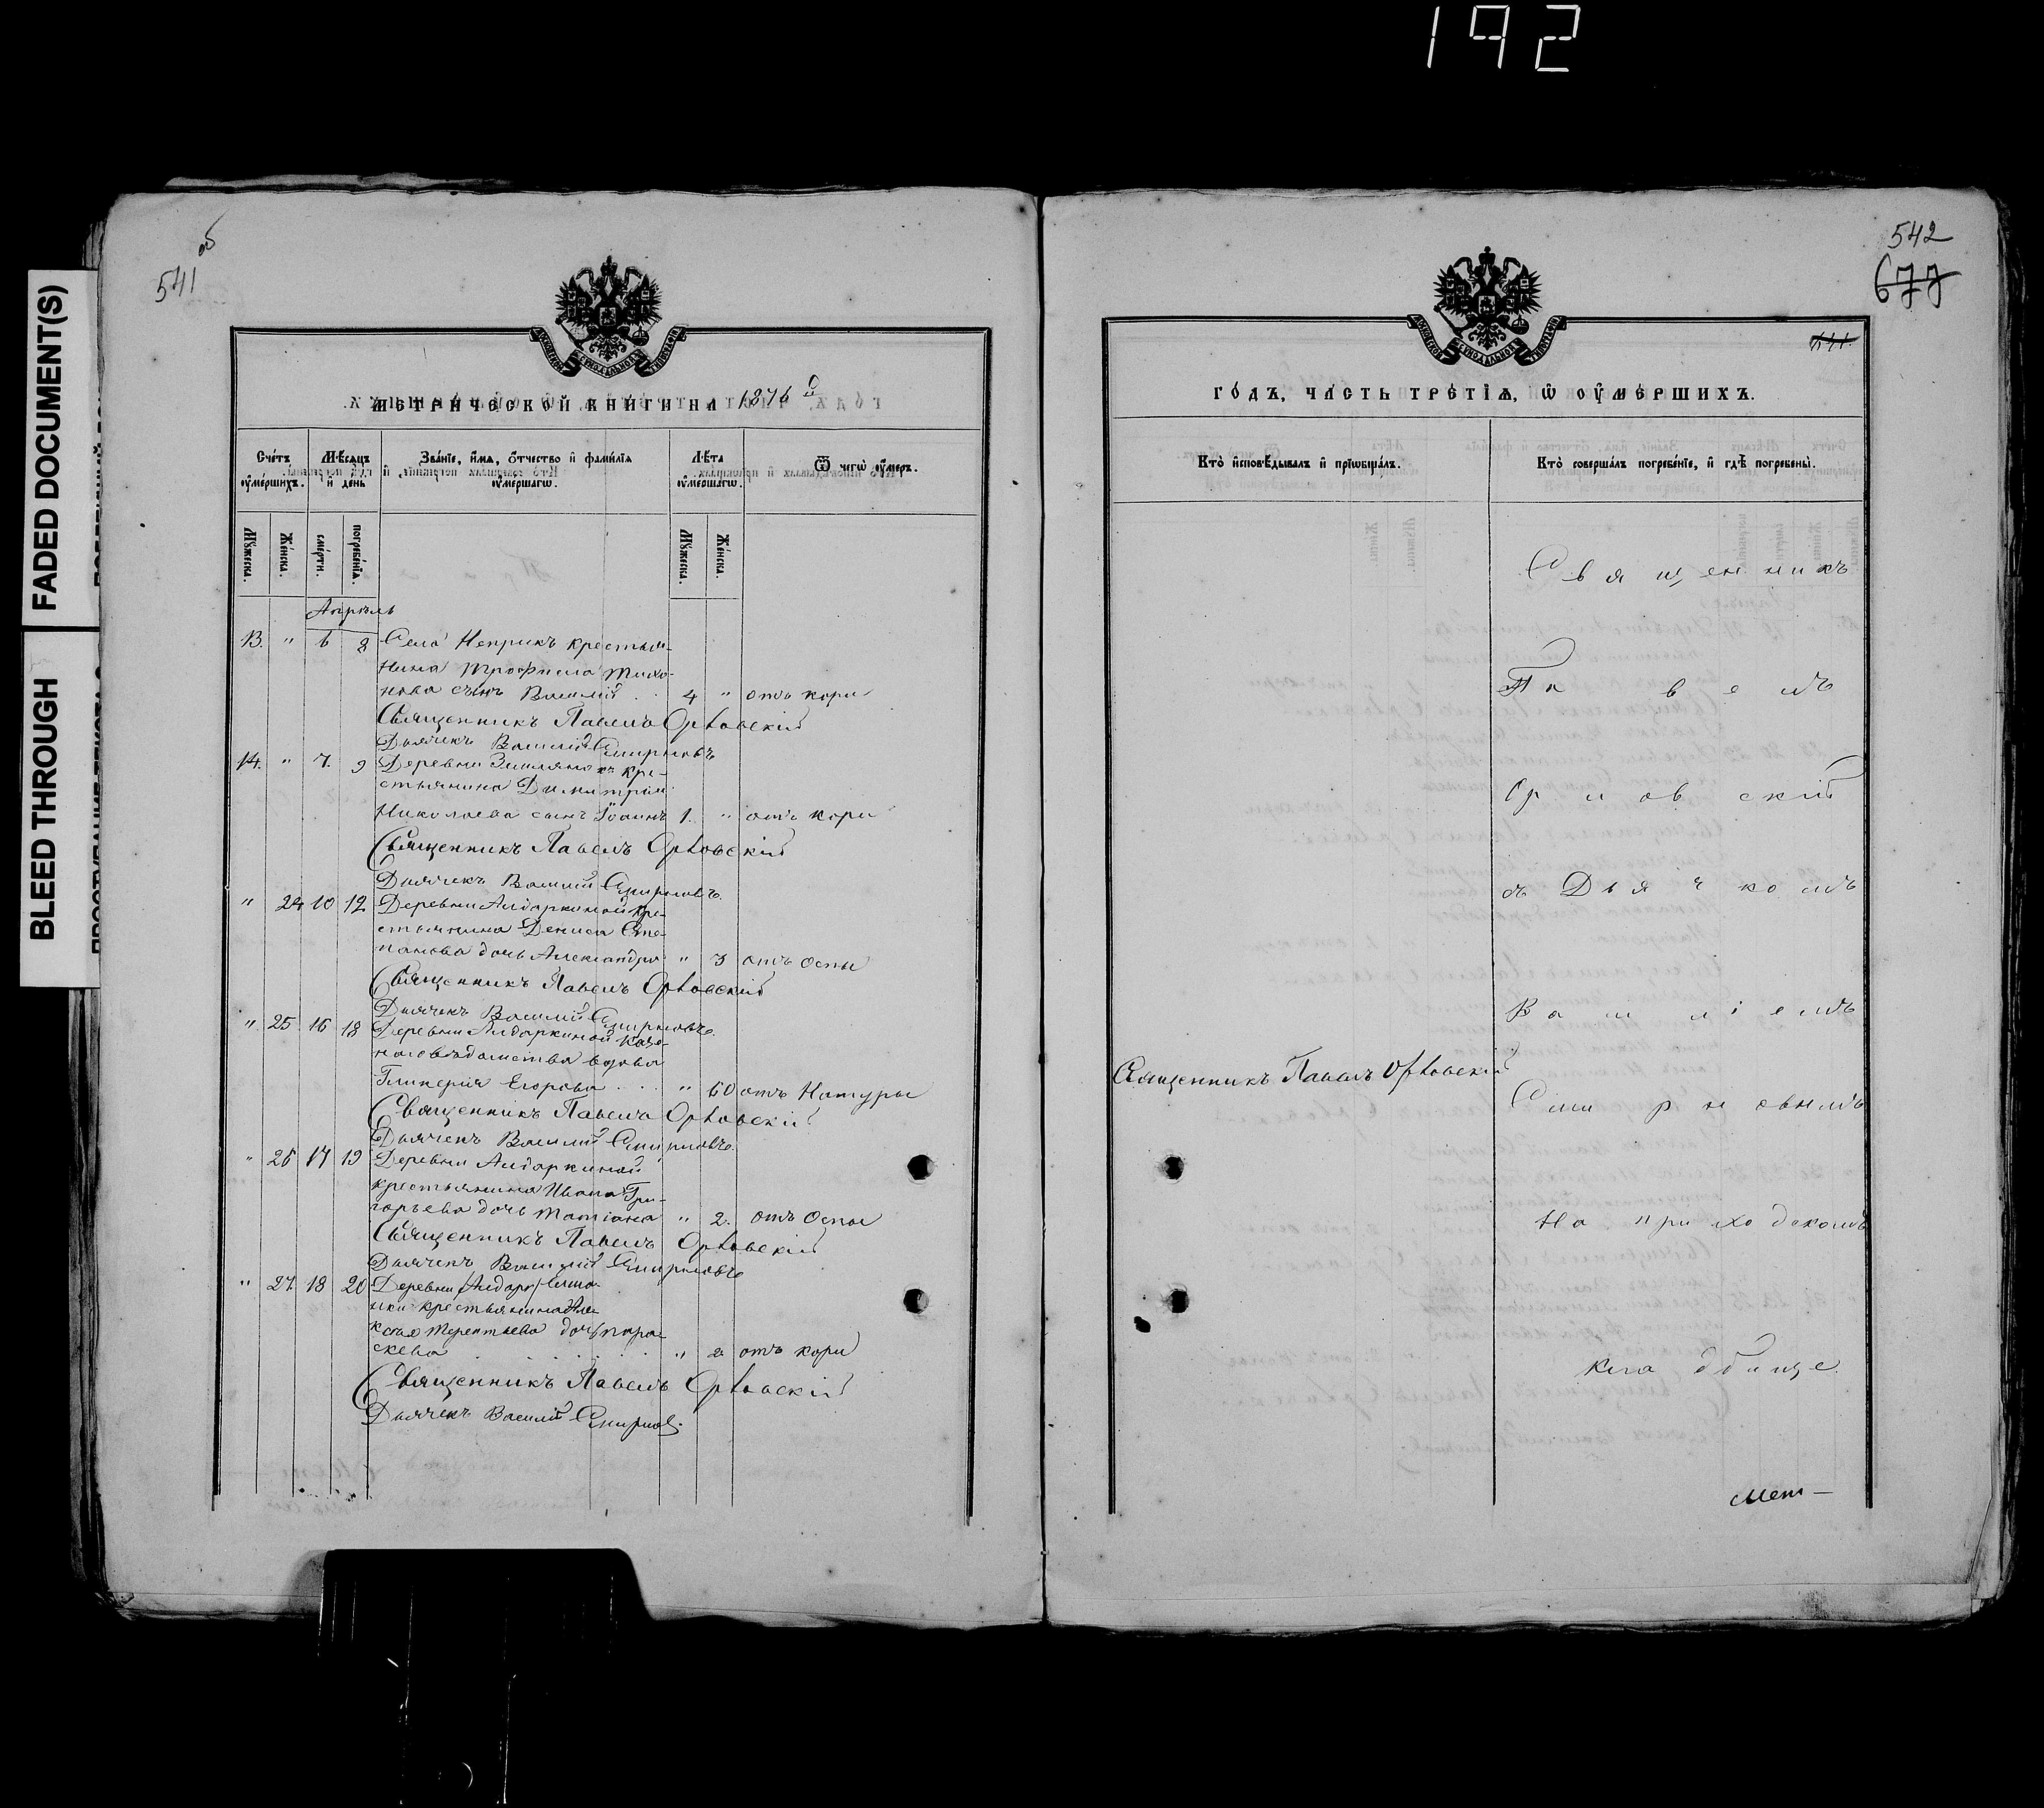 192
FADED DOCUMENT(S)
BLEED THROUGH
541 об
МОСКОВСКОЙ СИНОДАЛЬНОЙ ТИПОГРАФІИ
МЕТРИЧЕСКОЙ КНИГИ НА 1876 й
Счетъ оумершихъ.
Мѣсяцъ и день
Званіе, имя, отчество и фамилія оумершагѡ.
Лѣта оумершагѡ.
Ѿ чегѡ оумеръ.
Мужеска.
Женска.
смерти.
погребенія.
Мужеска.
Женска.
Апрѣль
13. " 6 8 Села Неприкъ крестья-
нина Трофима Тихо-
нова сынъ Василій . . 4 " отъ кори
Священникъ Павелъ Орловскій
Дьячекъ Василій Смирновъ
14. " 7. 9 Деревни Землянокъ кре-
стьянина Димитрія
Николаева сынъ Іоаннъ 1. " отъ кори
Священникъ Павелъ Орловскій
Дьячекъ Василій Смирновъ.
" 24 10 12 Деревни Алдаркиной кре-
стьянина Дениса Сте-
панова дочь Александра " 3 отъ Оспы
Священникъ Павелъ Орловскій
Дьячекъ Василій Смирновъ.
" 25 16 18 Деревни Алдаркиной казе-
наго вѣдомства вдова
Гликерія Егорова . . . " 60 отъ Натуры
Священникъ Павелъ Орловскій
Дьячекъ Василій Смирновъ.
" 26 17 19 Деревни Алдаркиной
крестьянина Ивана Гри-
горьева дочь Татіана " 2. отъ Оспы
Священникъ Павелъ Орловскій
Дьячекъ Василій Смирновъ
" 27. 18 20 Деревни
крестьянина Але-
ксѣя Терентьева дочь Пара-
скева . . . . . . " 2 отъ кори
Священникъ Павелъ Орловскій
Дьячекъ Василій Смирновъ.
542
677
МОСКОВСКОЙ СИНОДАЛЬНОЙ ТИПОГРАФІИ
ГОДЪ, ЧАСТЬ ТРЕТІѦ, Ѡ ОУМЕРШИХЪ.
Кто исповѣдывалъ и пріѡбщалъ.
Кто совершалъ погребеніе, и гдѣ погребены.
Священникъ
Павелъ
Орловскій
съ Дьячкомъ
Василіемъ
Священникъ Павелъ Орловскій
Смирновымъ
На приходскомъ
кладбище.
Мет-